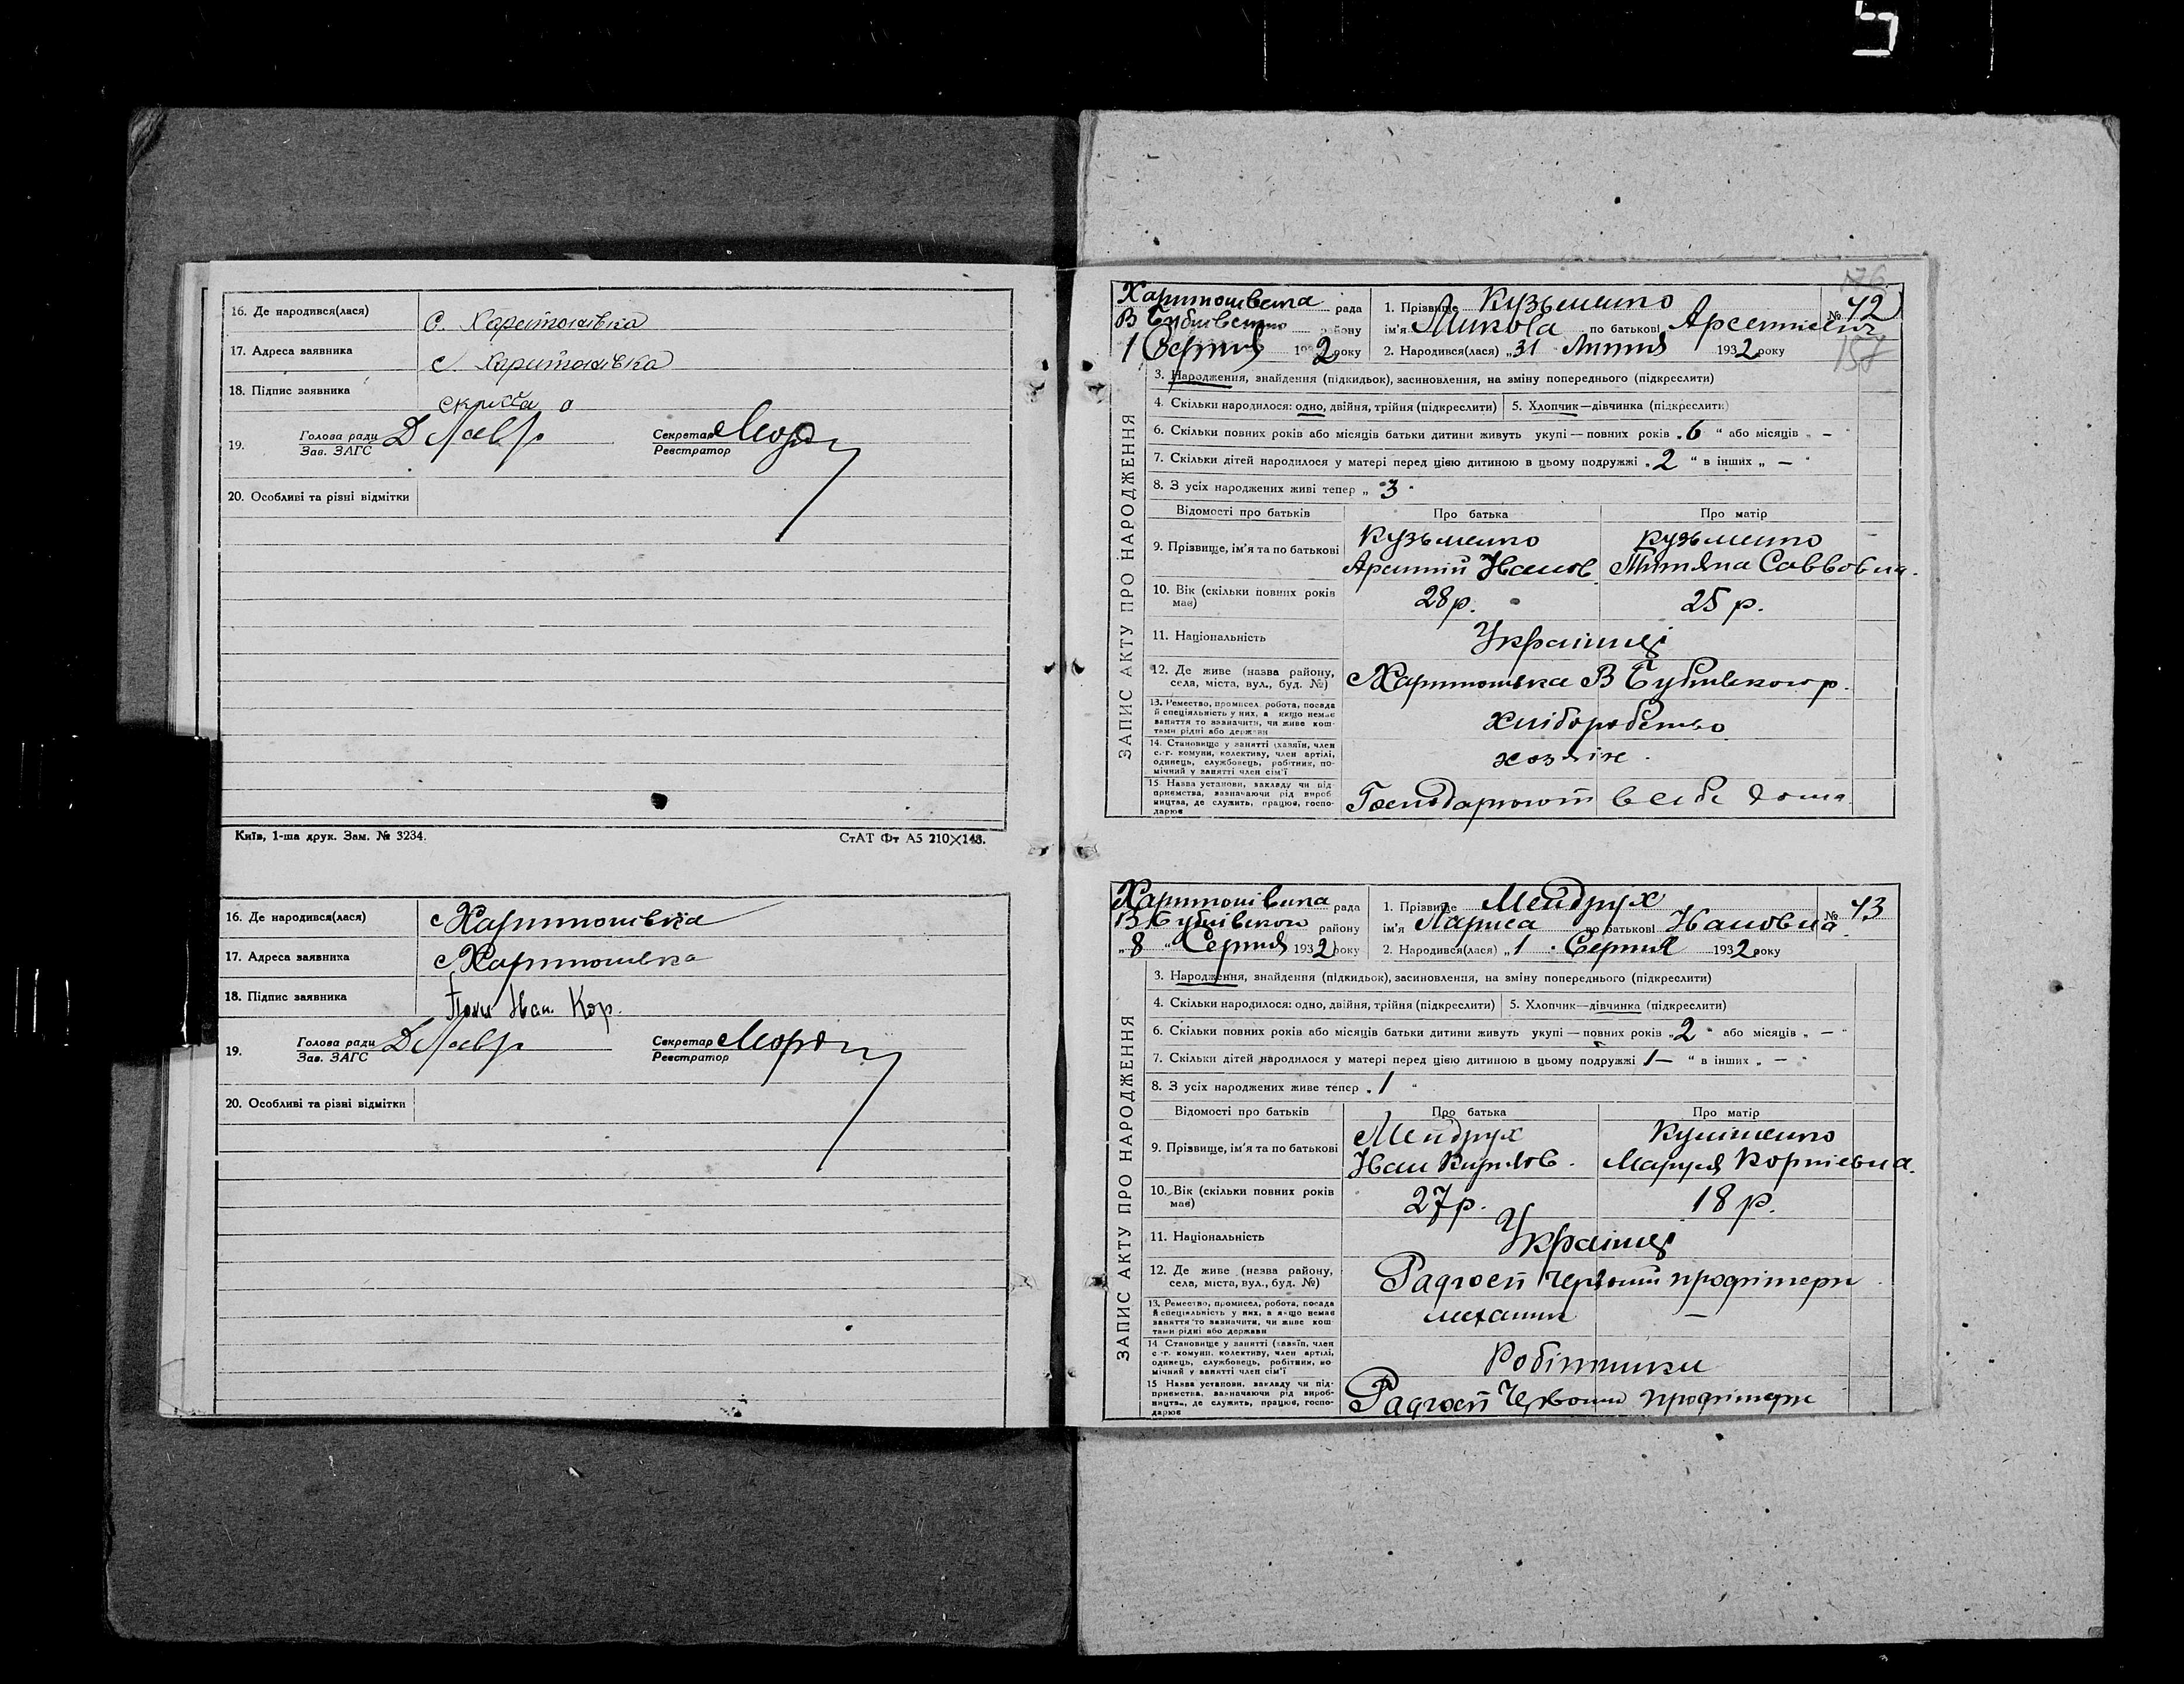 16. Де народився(лася) С. Харитонівка
17. Адреса заявника С. Харитонівка
18. Підпис заявника
19. Голова ради
Зав. ЗАГС
Секретар
Реєстратор
20. Особливі та різні відмітки
Київ, 1-ша друк. Зам. № 3234.
СтАТ Фт А5 210×148.
16. Де народився(лася) с Харитонівка
17. Адреса заявника с Харитонівка
18. Підпис заявника
19. Голова ради
Зав. ЗАГС
Секретар
Реєстратор
20. Особливі та різні відмітки
176
157
ЗАПИС АКТУ ПРО НАРОДЖЕННЯ
Харитонівська рада
В Бубнівського району
1 Серпня 1932 року
1. Прізвище Кузьменко № 42
ім'я Микола по батькові Арсентієвич
2. Народився(лася) „31 Липня 1932 року
3. Народження, знайдення (підкидьок), засиновлення, на зміну попереднього (підкреслити)
4. Скільки народилося: одно, двійня, трійня (підкреслити) 5. Хлопчик—дівчинка (підкреслити)
6. Скільки повних років або місяців батьки дитини живуть укупі — повних років „6 “ або місяців „ — “
7. Скільки дітей народилося у матері перед цією дитиною в цьому подружжі „2 “ в інших „ — “
8. З усіх народжених живі тепер „ 3 “
Відомості про батьків Про батька Про матір
9. Прізвище, ім'я та по батькові Кузьменко Кузьменко
Арсентій Иванов. Тітяна Саввовна.
10. Вік (скільки повних років має) 28 р. 25 р.
11. Національність Українці
12. Де живе (назва району, села, міста, вул., буд. №) с Харитонівка В Бубнівського р.
13. Ремество, промисел, робота, посада й спеціяльність у них, а якщо немає заняття то зазначити, чи живе коштами рідні або держави хліборобство
14. Становище у занятті (хазяїн, член с.-г. комуни, колективу, член артілі, одинець, службовець, робітник, помічний у занятті член сім'ї хозяїн.
15 Назва установи, закладу чи підприємства, зазначаючи рід виробництва, де служить, працює, господарює Господарюют в себе дома
ЗАПИС АКТУ ПРО НАРОДЖЕННЯ
Харитонівська рада
В Бубнівського району
„8 “ Серпня 1932 року
1. Прізвище Мейдрух № 43
ім'я Лариса по батькові Ивановна
2. Народився(лася) „1 Серпня 1932 року
3. Народження, знайдення (підкидьок), засиновлення, на зміну попереднього (підкреслити)
4. Скільки народилося: одно, двійня, трійня (підкреслити) 5. Хлопчик—дівчинка (підкреслити)
6. Скільки повних років або місяців батьки дитини живуть укупі — повних років „2 “ або місяців „ — “
7. Скільки дітей народилося у матері перед цією дитиною в цьому подружжі 1— “ в інших „ — “
8. З усіх народжених живе тепер „1 “
Відомості про батьків Про батька Про матір
9. Прізвище, ім'я та по батькові Мейдрух Кулішенко
Иван Кирилов. Маруся Корнієвна.
10. Вік (скільки повних років має) 27 р. 18 р.
11. Національність Українці
12. Де живе (назва району, села, міста, вул., буд. №) Радгосп Червоний профінтерн
13. Ремество, промисел, робота, посада й спеціяльність у них, а якщо немає заняття то зазначити, чи живе коштами рідні або держави механик —
14 Становище у занятті (хазяїн, член с.-г. комуни, колективу, член артілі, одинець, службовець, робітник, помічний у занятті член сім'ї Робітники
15 Назва установи, закладу чи підприємства, зазначаючи рід виробництва, де служить, працює, господарює Радгосп Червоний профінтерн